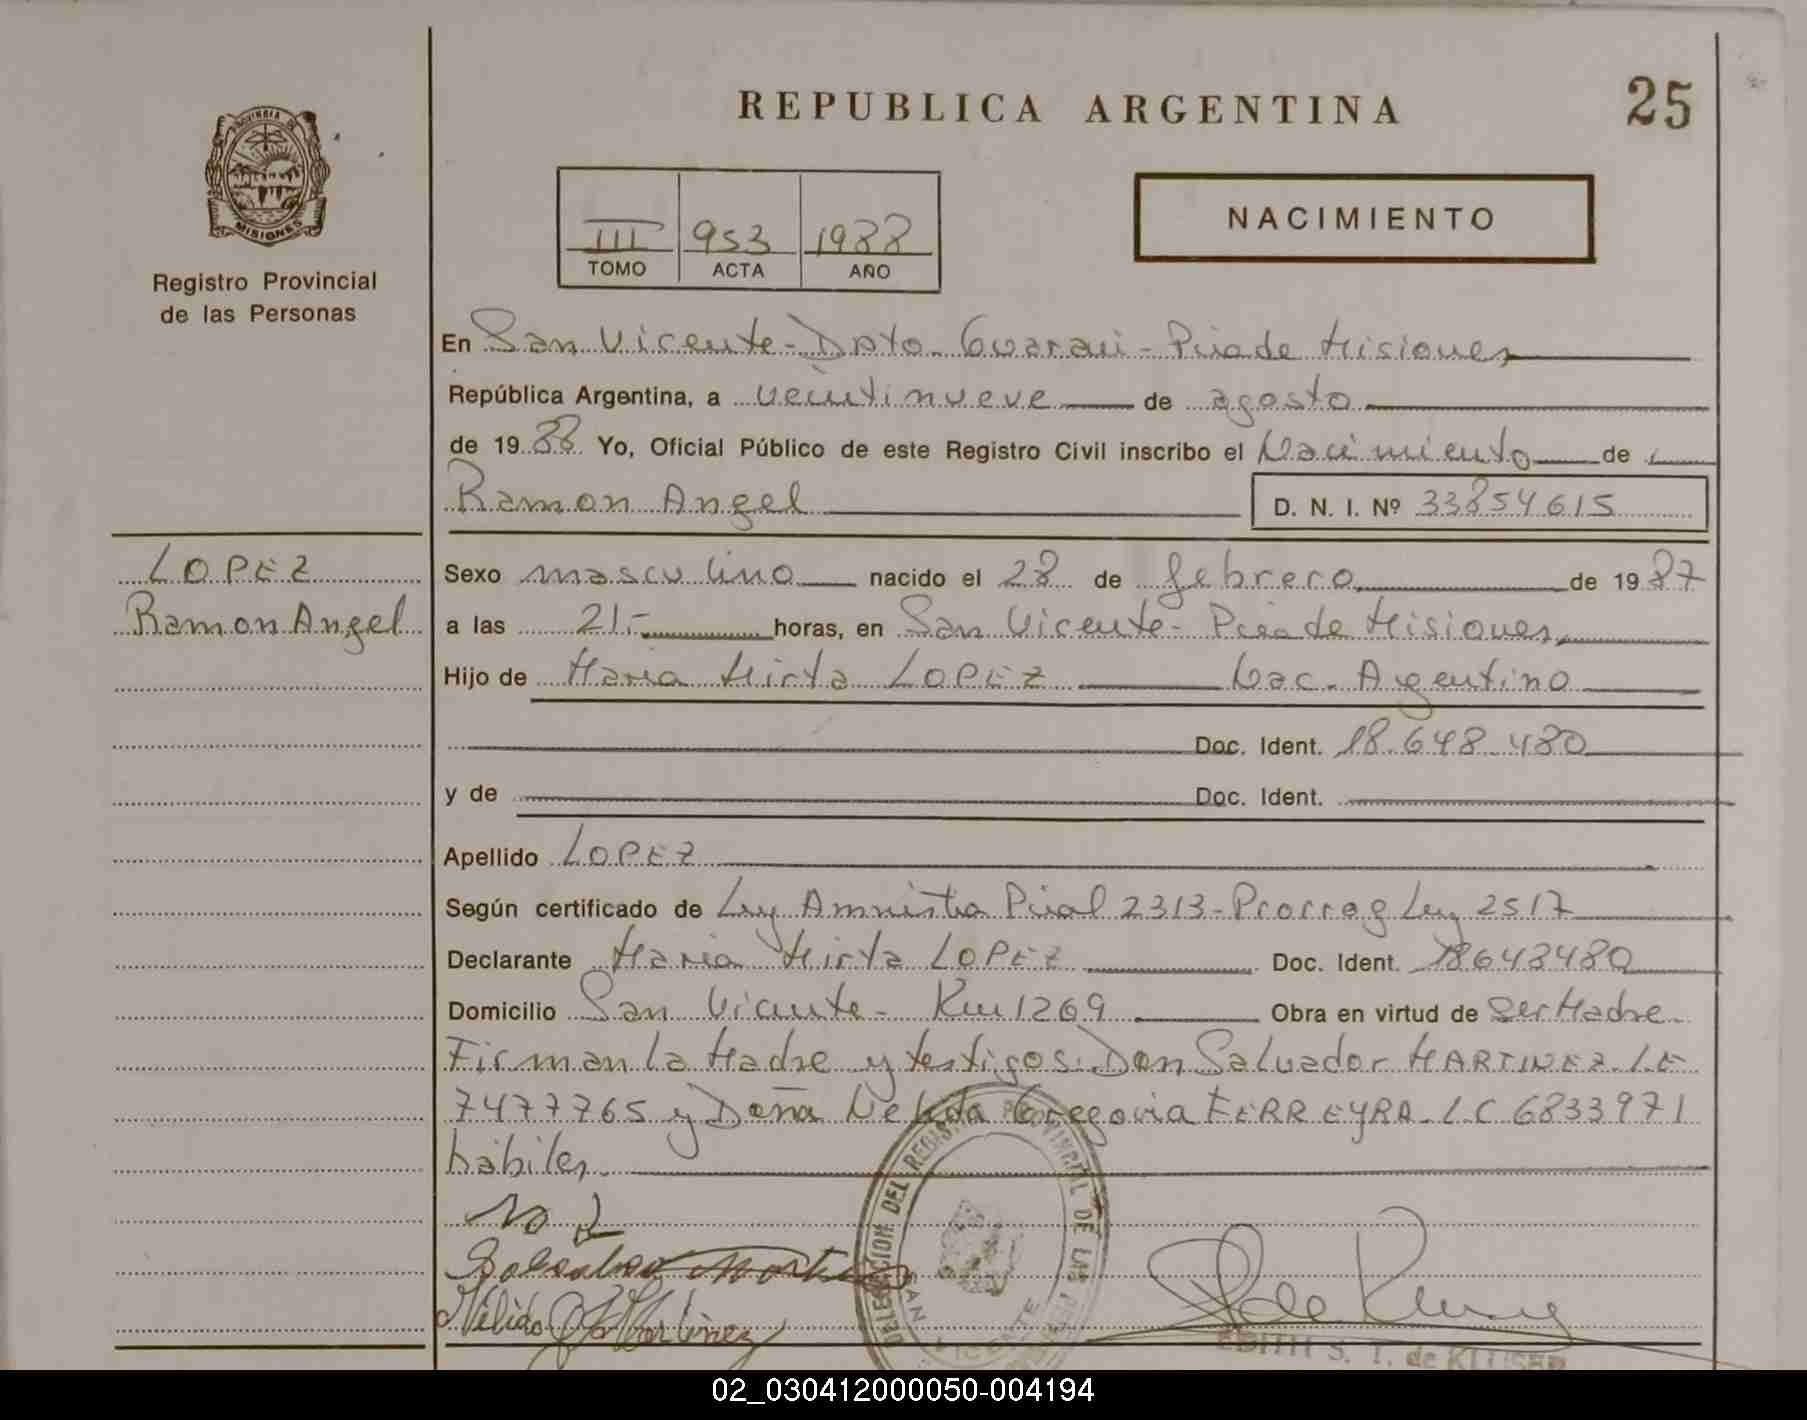 REPUBLICA ARGENTINA
25
PROVINCIA DE
MISIONES
Registro Provincial
de las Personas
III 953 1988
TOMO ACTA AÑO
NACIMIENTO
En San Vicente - Dpto - Guarani - Pcia de Misiones
República Argentina, a veintinueve de agosto
de 1988 Yo, Oficial Público de este Registro Civil inscribo el Nacimiento de
Ramon Angel D. N. I. Nº 33854615
LOPEZ
Ramon Angel
Sexo masculino nacido el 28 de febrero de 1987
a las 21.- horas, en San Vicente - Pcia de Misiones
Hijo de Maria Mirta LOPEZ Nac. Argentino
Doc. Ident. 18.648.480
y de Doc. Ident.
Apellido LOPEZ
Según certificado de Ley Amnistia Pcial 2313 - Prorrog Ley 2517
Declarante Maria Mirta LOPEZ Doc. Ident. 18648480
Domicilio San Vicente - Km 1269 Obra en virtud de Ser Madre -
Firman la Madre y testigos: Don Salvador MARTINEZ - LE
7477765 y Doña Nelida Gregoria FERREYRA - LC 6833971
hábiles
DELEGACION DEL REGISTRO PROVINCIAL DE LAS
SAN VICENTE
EDITH S. T. de KLUSER
02_030412000050-004194